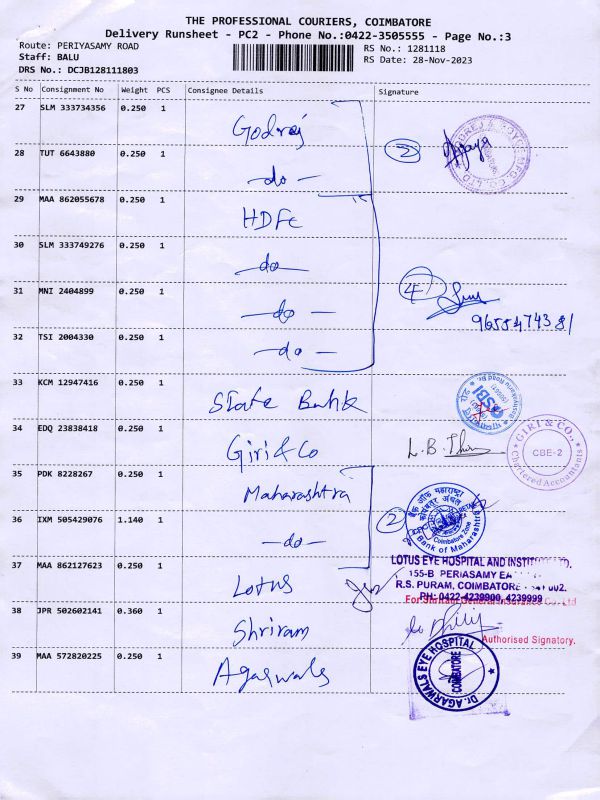 THE PROFESSIONAL COURIERS, COIMBATORE
Delivery Runsheet - PC2 - Phone No.:0422-3505555 - Page No.:3
Route: PERIYASAMY ROAD
RS No.: 1281118
Staff: BALU
RS Date: 28-Nov-2023
DRS No.: DCJB128111803
S No Consignment No Weight PCS Consignee Details Signature
27 SLM 333734356 0.250 1 Godrej
28 TUT 6643880 0.250 1 -do- 2
29 MAA 862055678 0.250 1 HDFC
30 SLM 333749276 0.250 1 do
31 MNI 2404899 0.250 1 -do- 4
9655474381
32 TSI 2004330 0.250 1 -do-
33 KCM 12947416 0.250 1 State Bank
SBI
34 EDQ 23838418 0.250 1 Giri & Co
GIRI & CO.,
CBE-2
Chartered Accountants
35 PDK 8228267 0.250 1 Maharashtra
36 IXM 505429076 1.140 1 -do- 2
बैंक ऑफ महाराष्ट्र
Coimbatore Zone
Bank of Maharashtra
37 MAA 862127623 0.250 1 Lotus
LOTUS EYE HOSPITAL AND
155-B PERIASAMY
R.S. PURAM, COIMBATORE
PH: 0422-4239900, 4239999
For Shriram General Insurance Co. Ltd
38 JPR 502602141 0.360 1 Shriram
Authorised Signatory.
39 MAA 572820225 0.250 1 Agarwals
Dr. AGARWALS EYE HOSPITAL
COIMBATORE